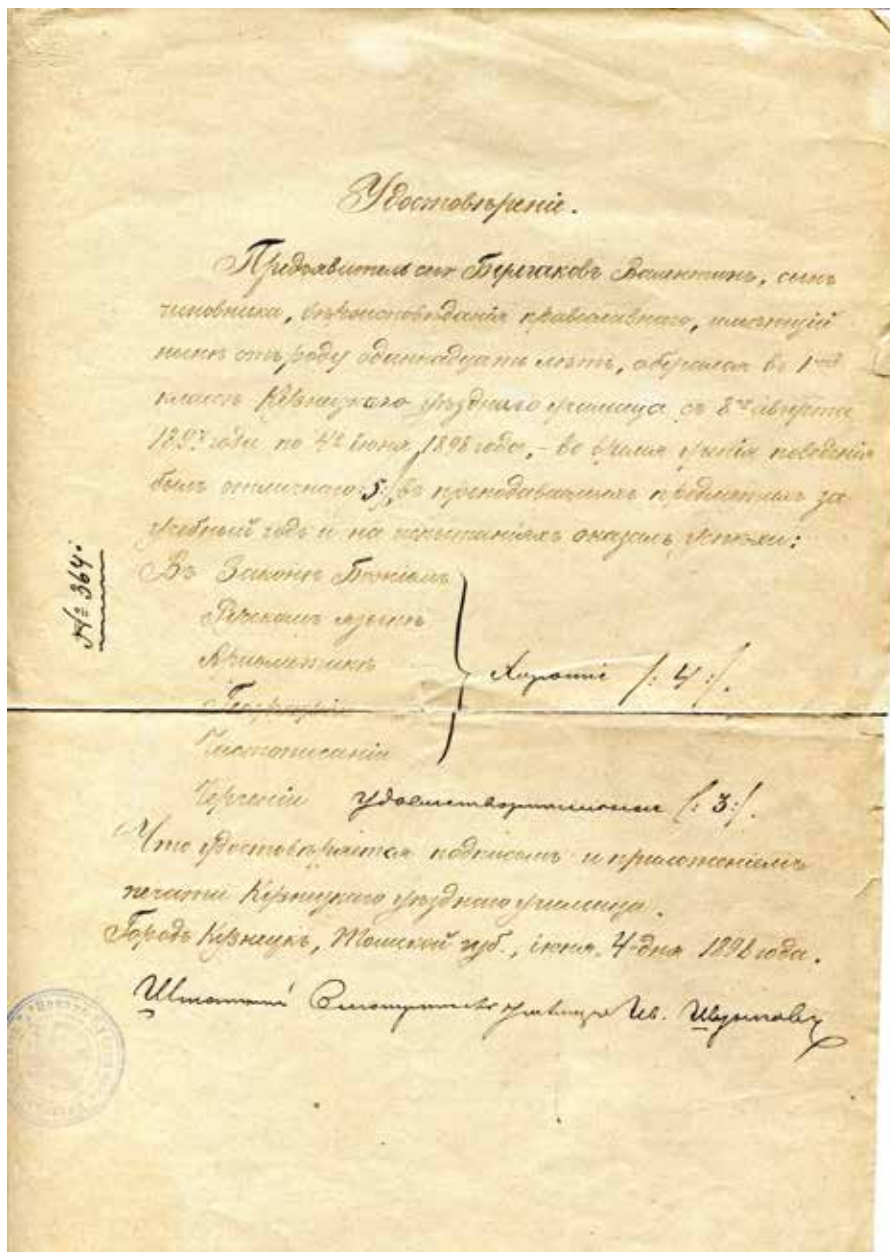 Удостовѣреніе.
Предъявитель сего Булгаковъ Валентинъ, сынъ
чиновника, вѣроисповѣданія православнаго, имѣющій
нынѣ отъ роду одиннадцать лѣтъ, обучался въ 1мъ
классѣ Кузнецкаго уѣзднаго училища съ 8го августа
1897 года по 4е іюня 1898 года, - во время ученія поведенія
былъ отличнаго /:5:/, въ преподаваемыхъ предметахъ за
учебный годъ и на испытаніяхъ оказалъ успѣхи:
Въ Законѣ Божіемъ
Русскомъ языкѣ
Ариѳметикѣ
Хорошіе /: 4 :/.
Географіи
Чистописаніи
Черченіи удовлетворительные /: 3 :/.
Что удостовѣряется подписомъ и приложеніемъ
печати Кузнецкаго уѣзднаго училища.
Городъ Кузнецкъ, Томской губ., іюня 4 дня 1898 года.
Штатный Смотритель училища Ив.
№ 364.